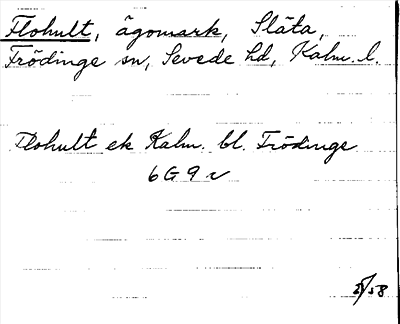 Flohult, ägomark, Släta,
Frödinge sn, Sevede hd, Kalm. l.
Flohult ek Kalm. bl. Frödinge
6G9v